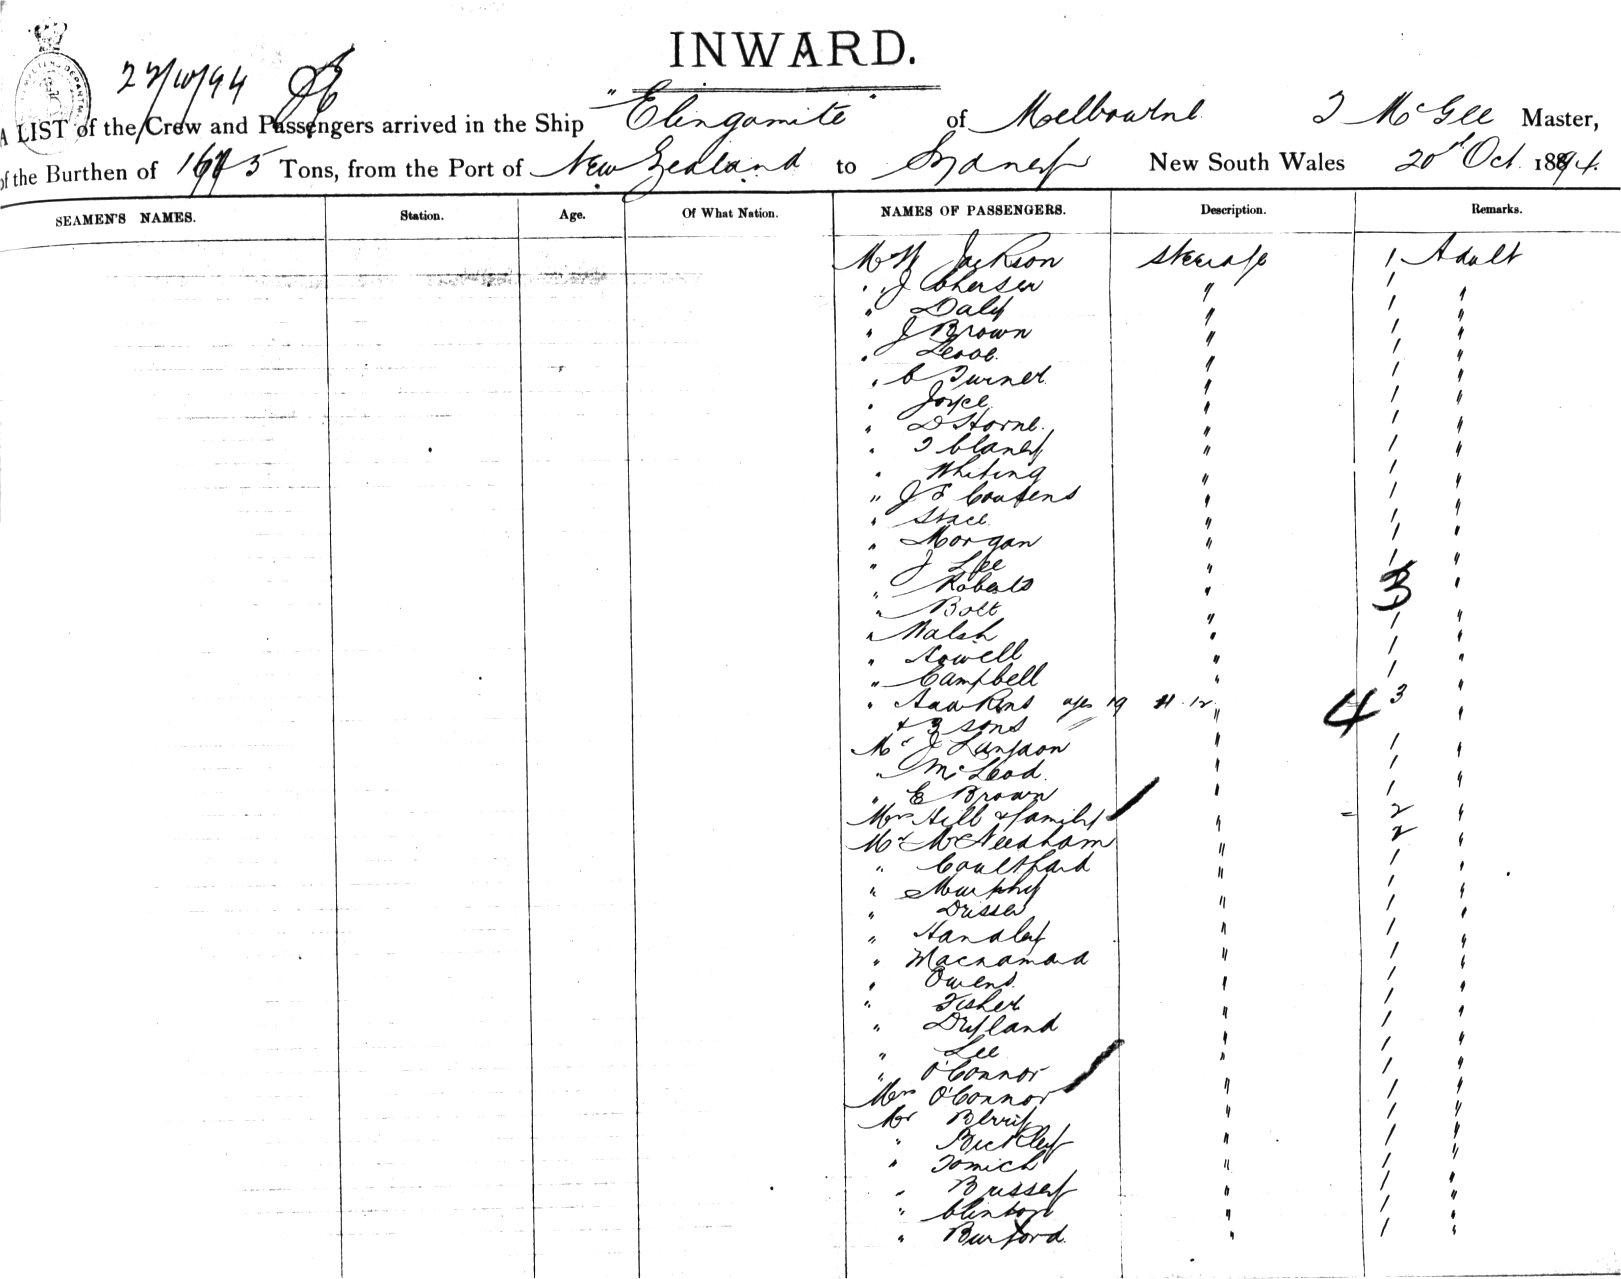 INWARD.
22/10/94
A LIST of the Crew and Passengers arrived in the Ship "Elingamite" of Melbourne J McGee Master,
of the Burthen of 1675 Tons, from the Port of New Zealand to Sydney New South Wales 20th Oct. 1894.
SEAMEN'S NAMES. Station. Age. Of What Nation. NAMES OF PASSENGERS. Description. Remarks.
Mr W Jackson steerage 1 Adult
" J " 1 "
" Daly " 1 "
" J Brown " 1 "
" " 1 "
" C Turner " 1 "
" Joyce " 1 "
" D Horne " 1 "
" J Clancy " 1 "
" Whiting " 1 "
" J E Cousens " 1 "
" Stace " 1 "
" Morgan " 1 "
" J Lee " 1 "
" Roberts " 3 "
" Bolt "
" Walsh " 1 "
" Howell " 1 "
" Campbell " 1 "
" Hawkins ages 19 12 " 4 3 "
+ 3 sons
Mr J Langdon " 1 "
" McLeod " 1 "
" E Brown " 1 "
Mrs Hill & family " = 2 "
Mr McNeedham " 2 "
" Coulthard " 1 "
" Murphy " 1 "
" " 1 "
" Handley " 1 "
" Macnamara " 1 "
" Owens " 1 "
" Fisher " 1 "
" Dryland " 1 "
" Lee " 1 "
" O'Connor " 1 "
Mrs O'Connor " 1 "
Mr Berry " 1 "
" Bickley " 1 "
" Tomich " 1 "
" Bussey " 1 "
" Clinton " 1 "
" Burford " 1 "